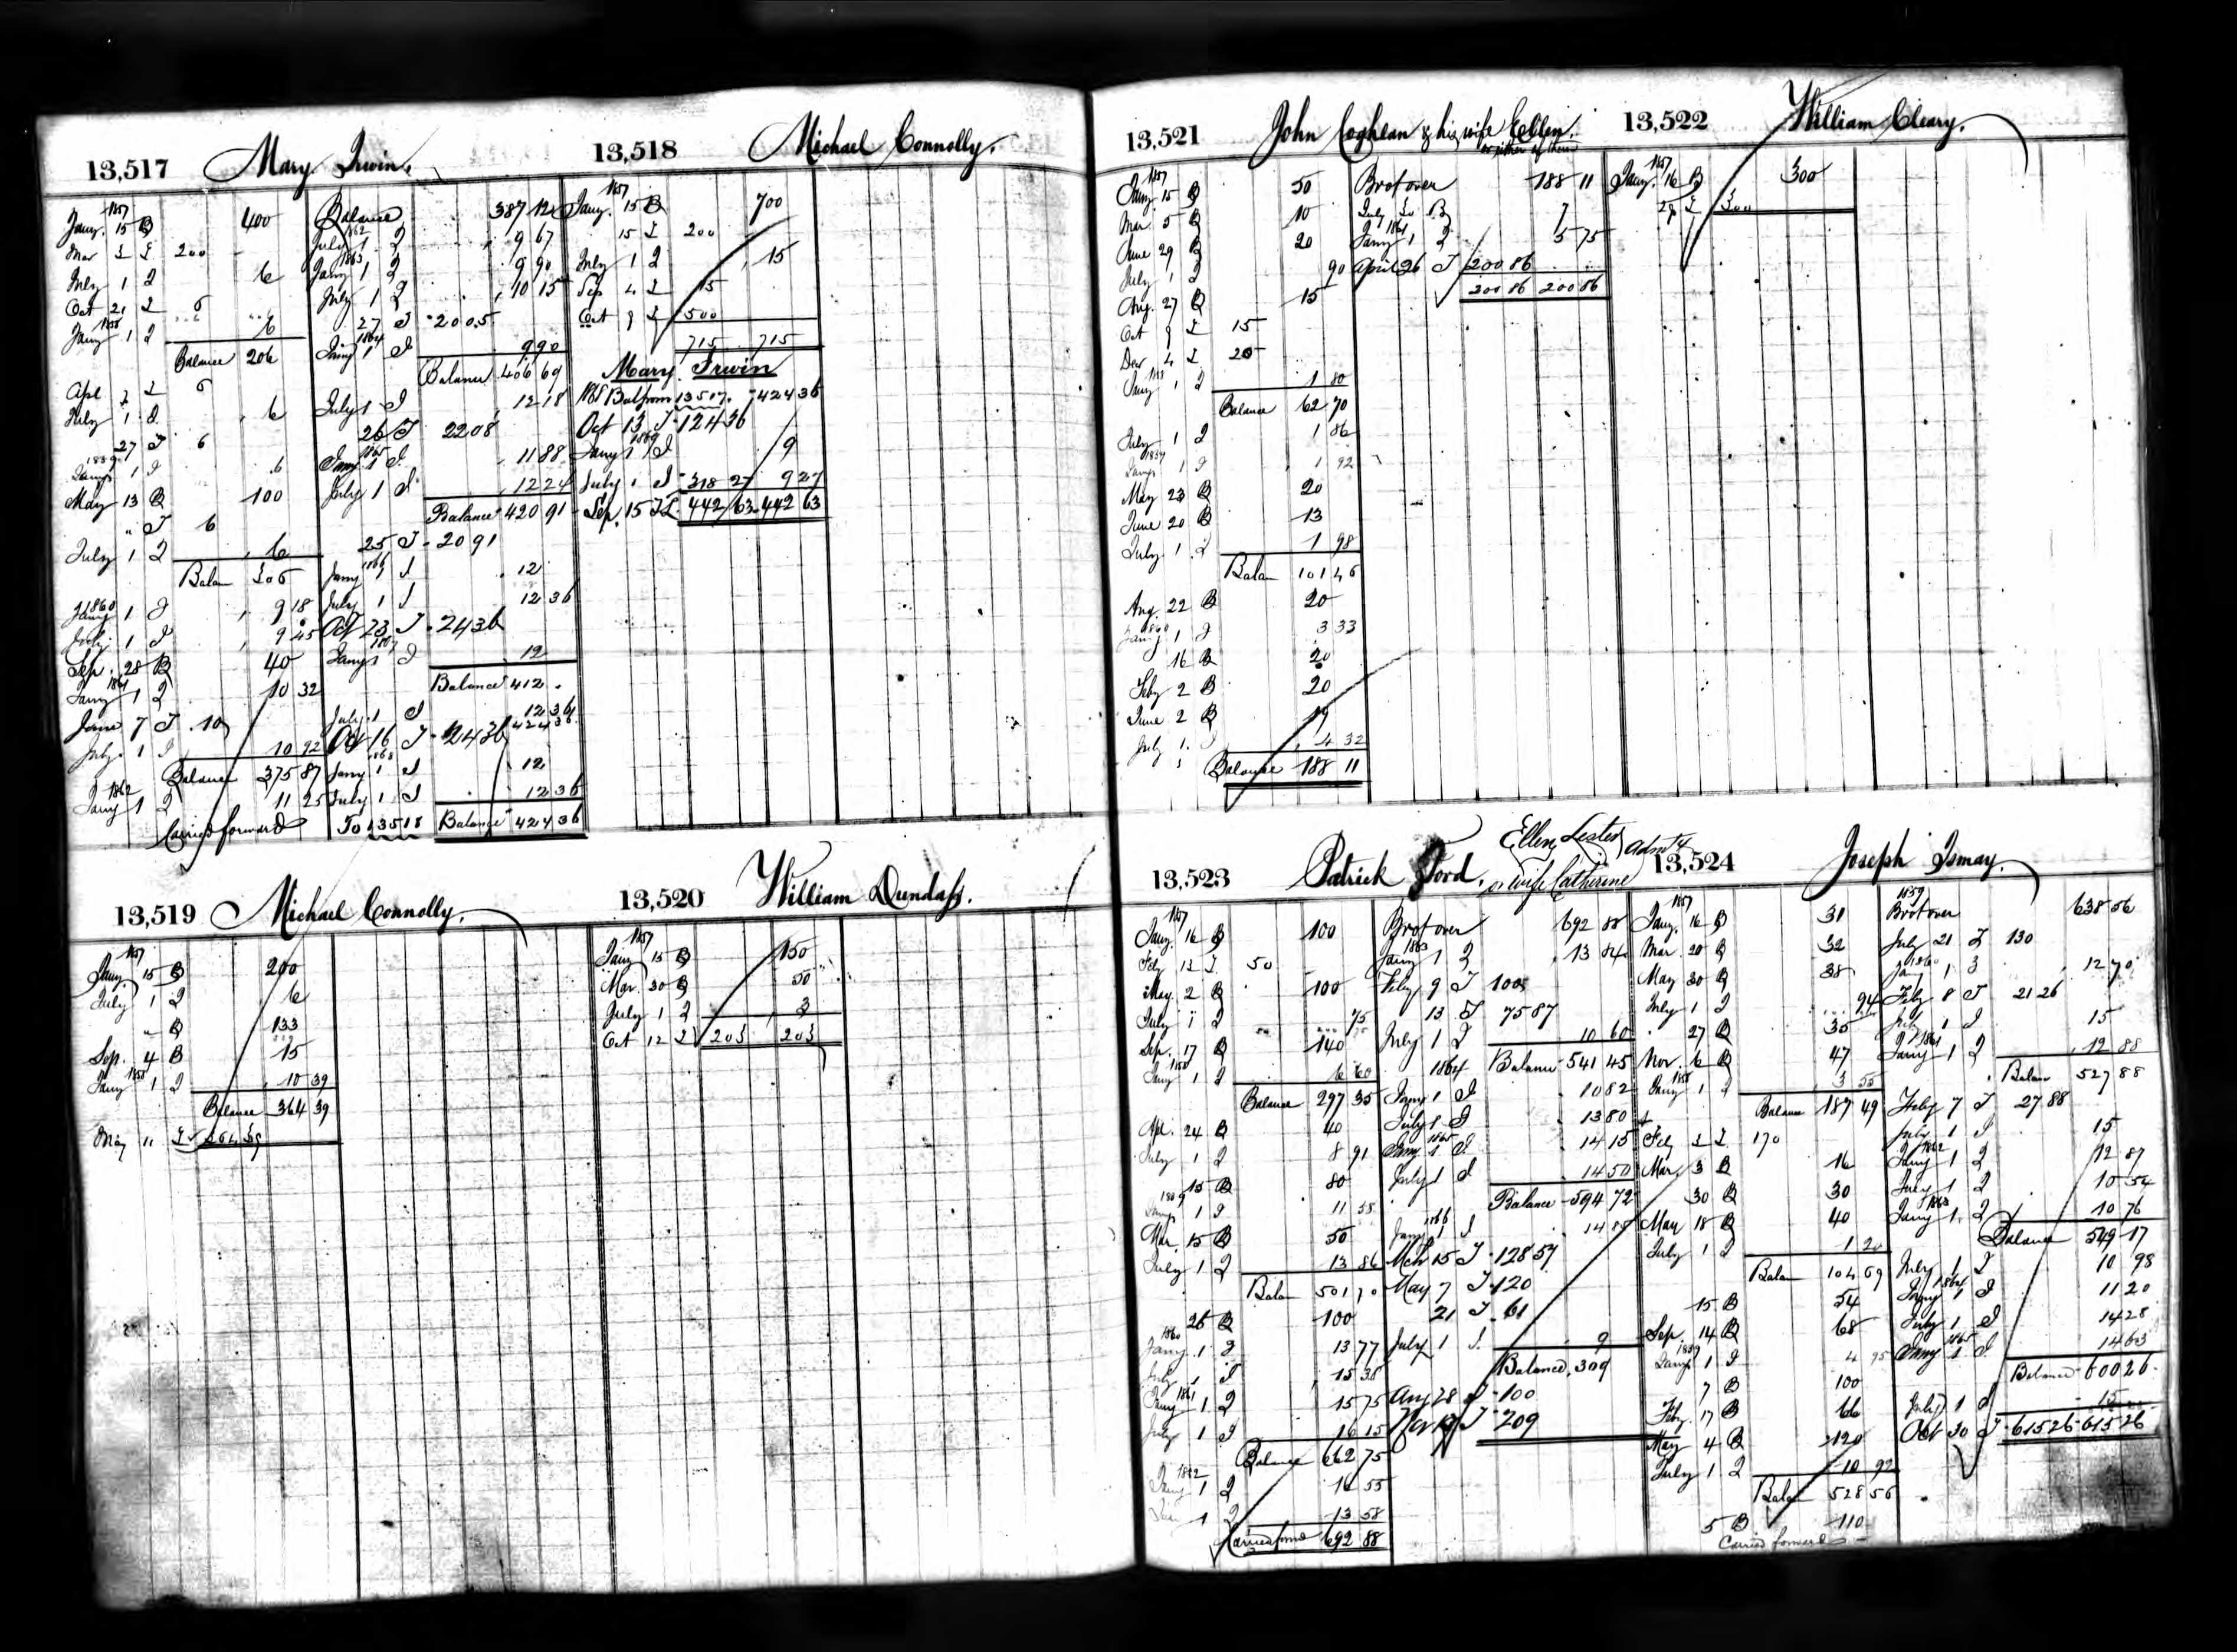 13,517 Mary Irwin.
1857
Jany. 15 B 400
Mar 3 I 200
July 1 I 6
Oct 21 I 6
1858
Jany 1 I 6
Balance 206
Apl 7 I 6
July 1 I 6
27 I 6
1859
Jany 1 I 6
May 13 B 100
" I 6
July 1 I 6
Balan 306
1860
Jany 1 I 9 18
July 1 I 9 45
Sep. 28 B 40
1861
Jany 1 I 10 32
June 7 I 10
July 1 I 10 92
Balance 375 87
1862
Jany 1 I 11 25
Carried forward
Balance 387 12
1862
July 1 I 9 67
1863
Jany 1 I 9 90
July 1 I 10 15
27 I 20 05
1864
Jany 1 I 9 90
Balance 406 69
July 1 I 12 18
26 I 22 08
1865
Jany 1 I 11 88
July 1 I 12 24
Balance 420 91
25 I 20 91
1866
Jany 1 I 12
July 1 I 12 36
Oct 23 I 24 36
1867
Jany 1 I 12
Balance 412
July 1 I 12 36
424 36
Oct 16 I 24 36
1868
Jany 1 I 12
July 1 I 12 36
To 13518 Balance 424 36
13,518 Michael Connolly.
1857
Jany. 15 B 700
15 I 200
July 1 I 15
Sep 4 I 15
Oct 8 I 500
715 715
Mary Irwin
1868 Bal from 13517. 424 36
Oct 13 I 124 36
1869
Jany 1 I 9
July 1 I 318 27 9 27
Sep. 15 I 442 63 442 63
13,519 Michael Connolly.
1857
Jany. 15 B 200
July 1 I 6
" B 133
Sep. 4 B 15
1858
Jany 1 I 10 39
Balance 364 39
May 11 I 364 39
13,520 William Dundass.
1857
Jany 15 B 150
Mar. 30 B 50
July 1 I 3
Oct 12 I 203 203
13,521 John Coghlan & his wife Ellen.
or either of them
1857
Jany. 15 B 50
Mar. 5 B 10
June 29 B 20
July 1 I 90
Aug. 27 B 15
Oct 8 I 15
Dec 4 I 20
1858
Jany 1 I 1 80
Balance 62 70
July 1 I 1 86
1859
Jany 1 I 1 92
May 23 B 20
June 20 B 13
July 1 I 1 98
Balan 101 46
Aug. 22 B 20
1860
Jany 1 I 3 33
16 B 20
Feby 2 B 20
June 2 B 19
July 1. I 4 32
Balance 188 11
Brot over 188 11
July 30 B 7
1861
Jany 1 I 5 75
April 26 I 200 86
200 86 200 86
13,522 William Cleary.
1857
Jany. 16 B 300
28 I 300
13,523 Patrick Ford. or wife Catherine
Ellen Lester admx
1857
Jany. 16 B 100
Feby 12 I 50
May 2 B 100
July 1 I 75
Sep. 17 B 140
1858
Jany 1 I 6 60
Balance 297 35
Apl. 24 B 40
July 1 I 8 91
15 B 80
1859
Jany 1 I 11 58
Mar. 15 B 50
July 1 I 13 86
Balan 501 70
26 B 100
1860
Jany 1 I 13 77
July 1 I 15 38
1861
Jany 1 I 15 75
July 1 I 16 15
Balance 662 75
1862
Jany 1 I 16 55
1 I 13 58
Carried forwd 692 88
Brot over 692 88
1863
Jany 1 I 13 84
Feby 9 I 100
13 I 75 87
July 1 I 10 60
Balance 541 45
1864
Jany 1 I 10 82
July 1 I 13 80
1865
Jany 1 I 14 15
July 1 I 14 50
Balance 594 72
1866
Jany 1 I 14 85
Mch 15 I 128 57
May 7 I 120
21 I 61
July 1 I 9
Balance 309
Aug 28 I 100
Nov 19 I 209
13,524 Joseph Ismay.
1857
Jany. 16 B 31
Mar. 20 B 32
May 30 B 38
July 1 I 94
27 B 35
Nov. 6 B 47
1858
Jany 1 I 3 55
Balance 187 49
Feby 3 I 170
Mar. 3 B 16
30 B 30
May 18 B 40
July 1 I 1 20
Balan 104 69
15 B 54
Sep. 14 B 68
1859
Jany 1 I 4 95
7 B 100
Feby. 17 B 66
May 4 B 120
July 1 I 10 92
Balan 528 56
5 B 110
Carried forward
1859
Brot over 638 56
July 21 I 130
1860
Jany 1 I 12 70
Feby 8 I 21 26
July 1 I 15
1861
Jany 1 I 12 88
Balan 527 88
Feby 7 I 27 88
July 1 I 15
1862
Jany 1 I 12 87
July 1 I 10 54
1863
Jany 1 I 10 76
Balance 549 17
July 1 I 10 98
1864
Jany 1 I 11 20
July 1 I 14 28
1865
Jany 1 I 14 63
Balance 600 26
July 1 I 15
Oct 30 I 615 26 615 26